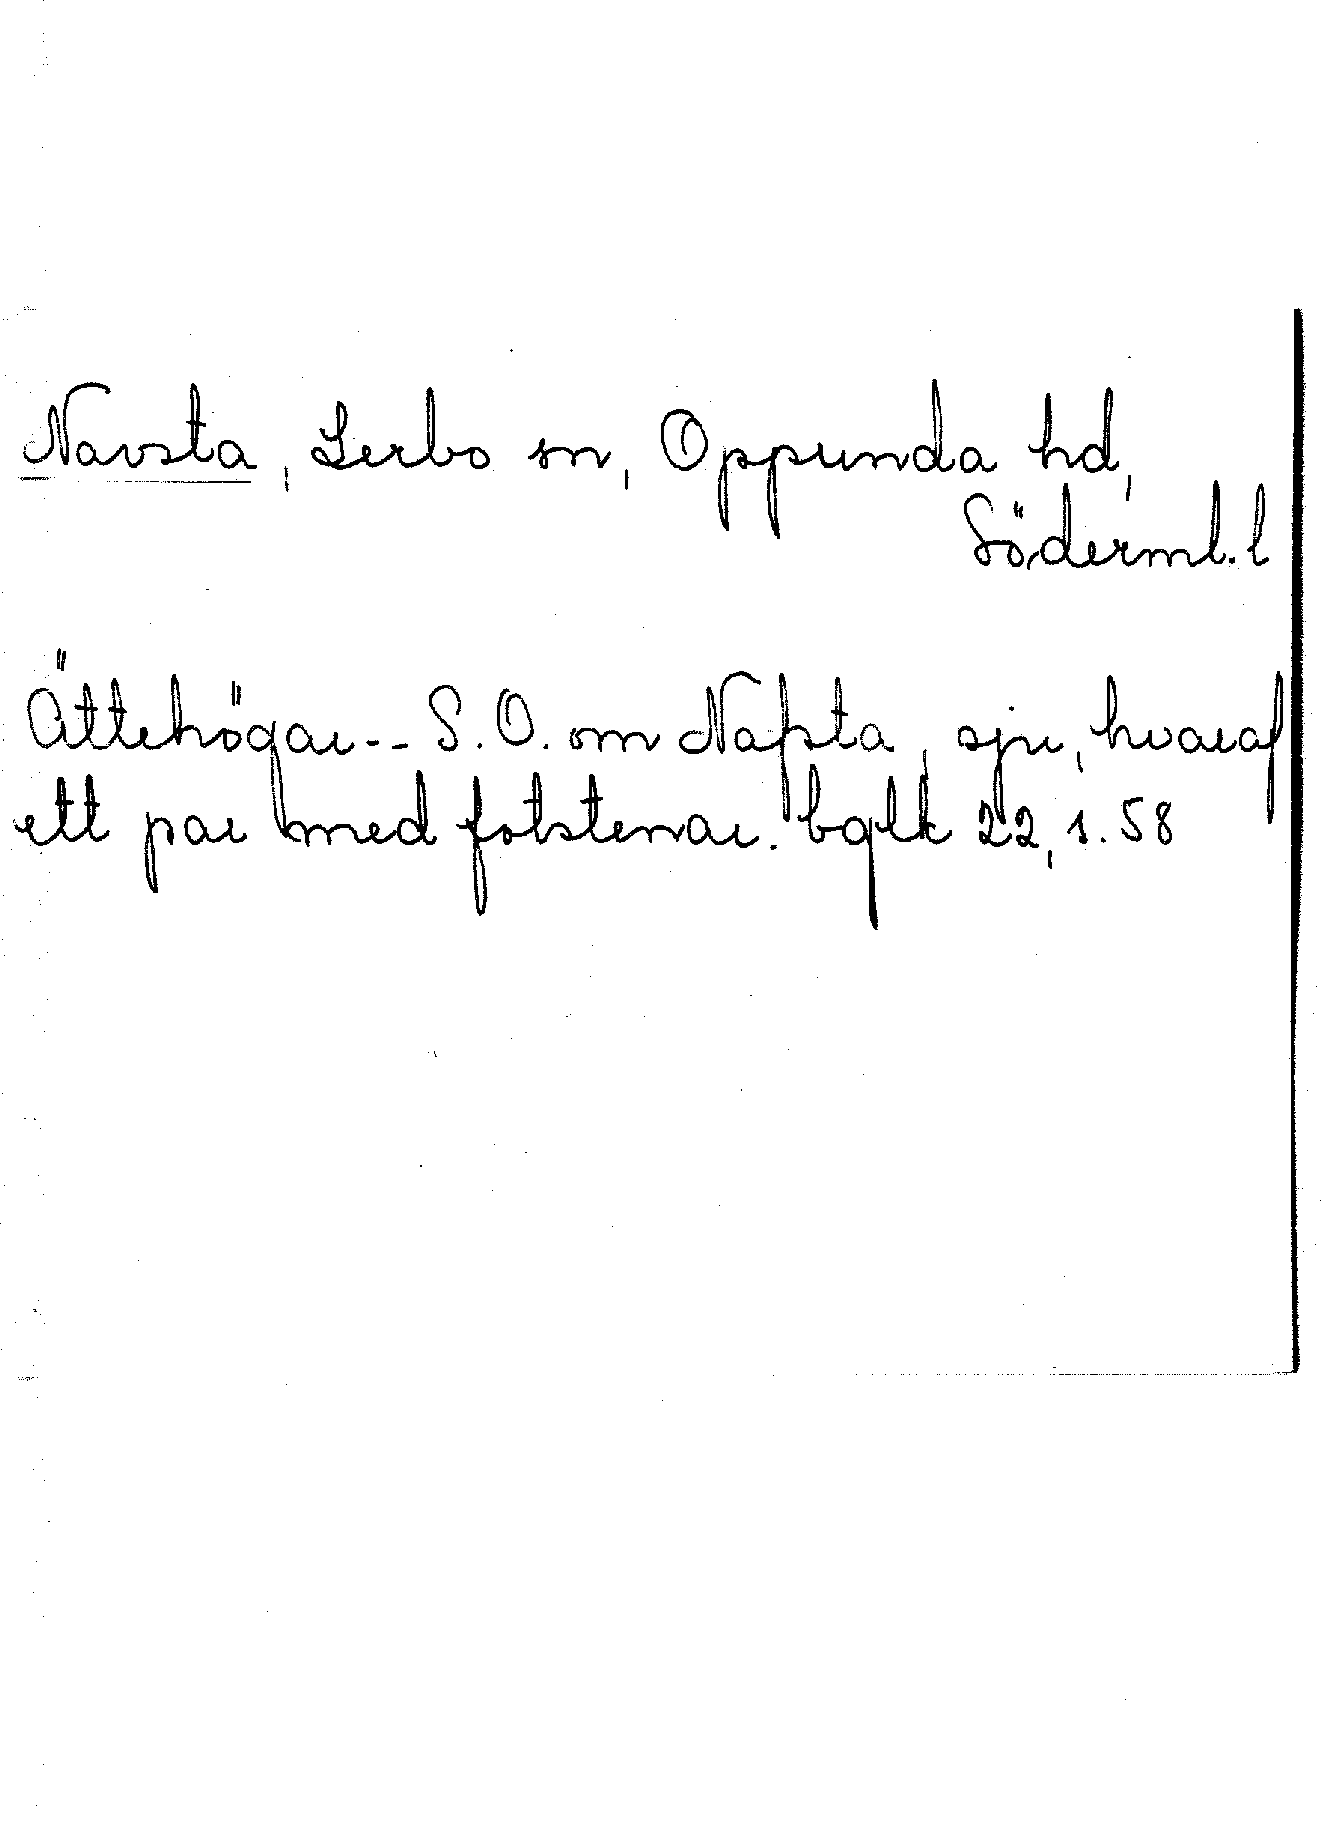 Navsta, Lerbo sn, Oppunda hd,
Söderml. l
Ättehögar-- S.O. om Nafsta, sju, hvaraf
ett par med fotstenar. bglk 22,1.58